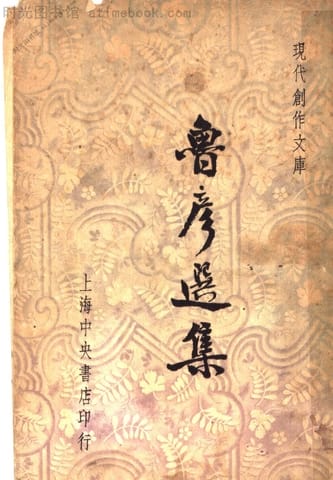 时光图书馆 - atimebook.com
現代創作文庫
魯彥選集
上海中央書店印行